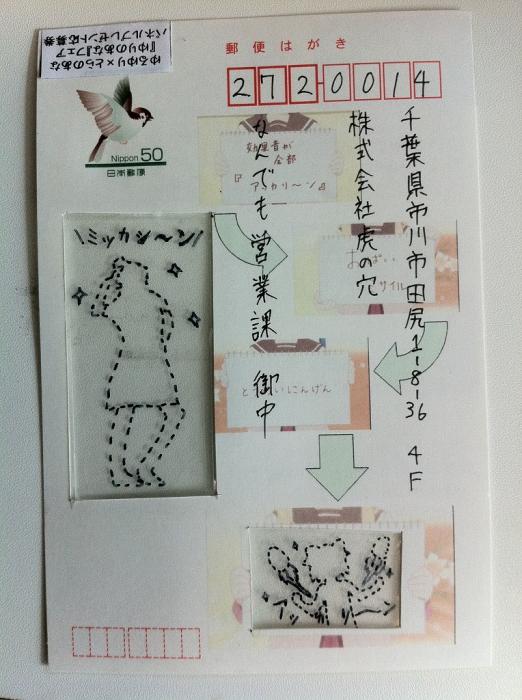 ゆるゆり×とらのあな
『ゆりのあな』フェア
パネルプレゼント応募券
郵便はがき
272-0014
Nippon 50
日本郵便
千葉県市川市田尻1-8-36 4F
株式会社虎の穴
なんでも営業課 御中
効果音が
全部
『アッカリ〜ン』
おっぱい
サイル
といにんげん
\ミッカミ〜ン/
アッカリーン